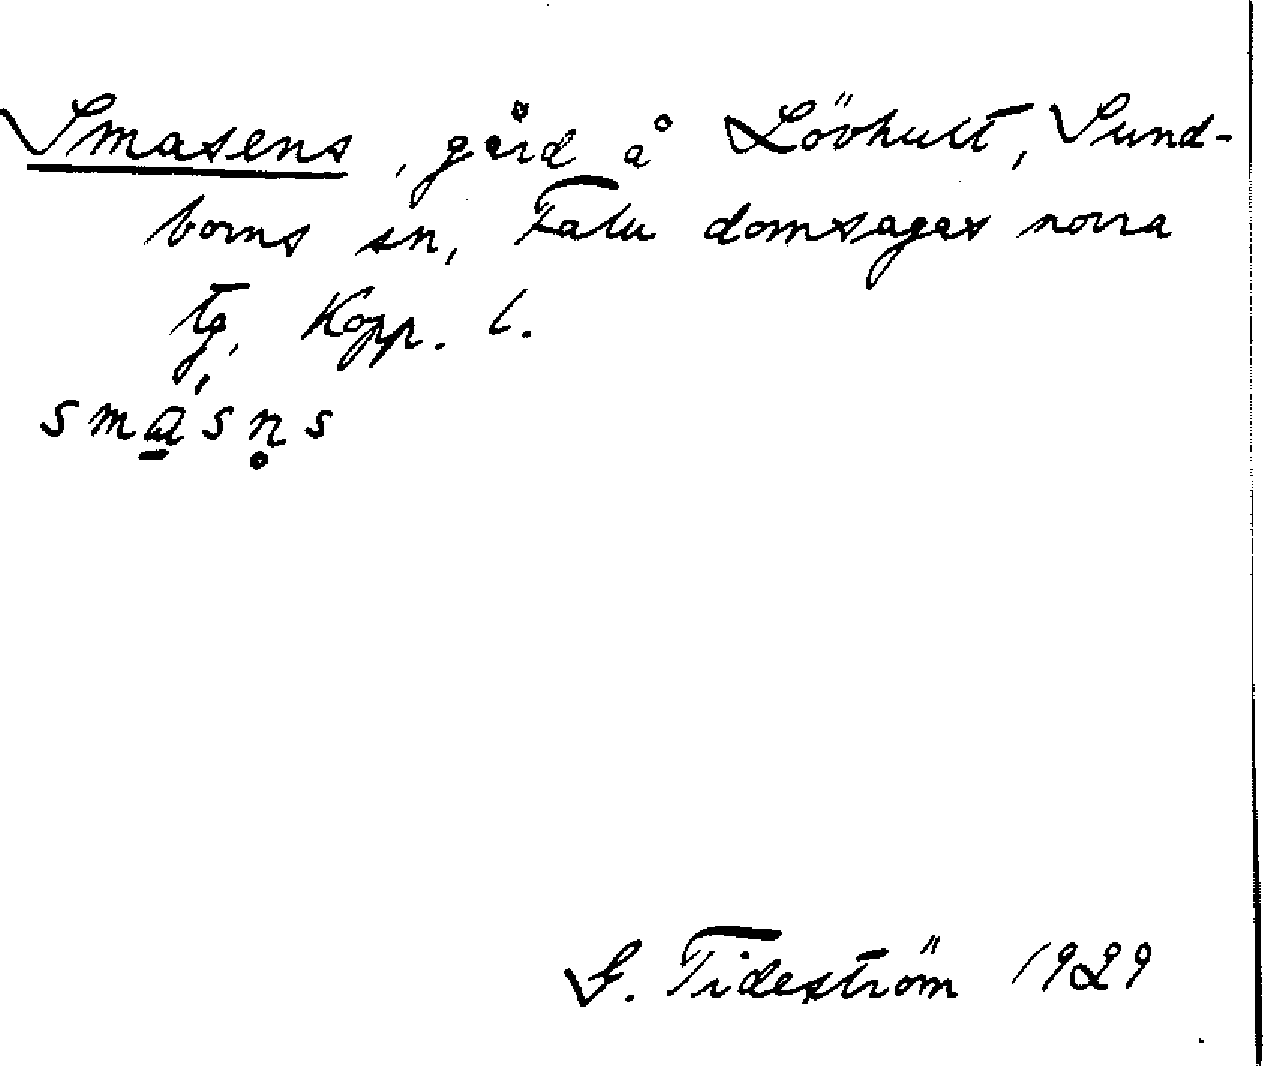 Smasens, gård å Lövhult, Sund-
borns sn, Falu domsagas norra
tg, Kopp. l.
sma̱'sn̥s
G. Tideström 1929